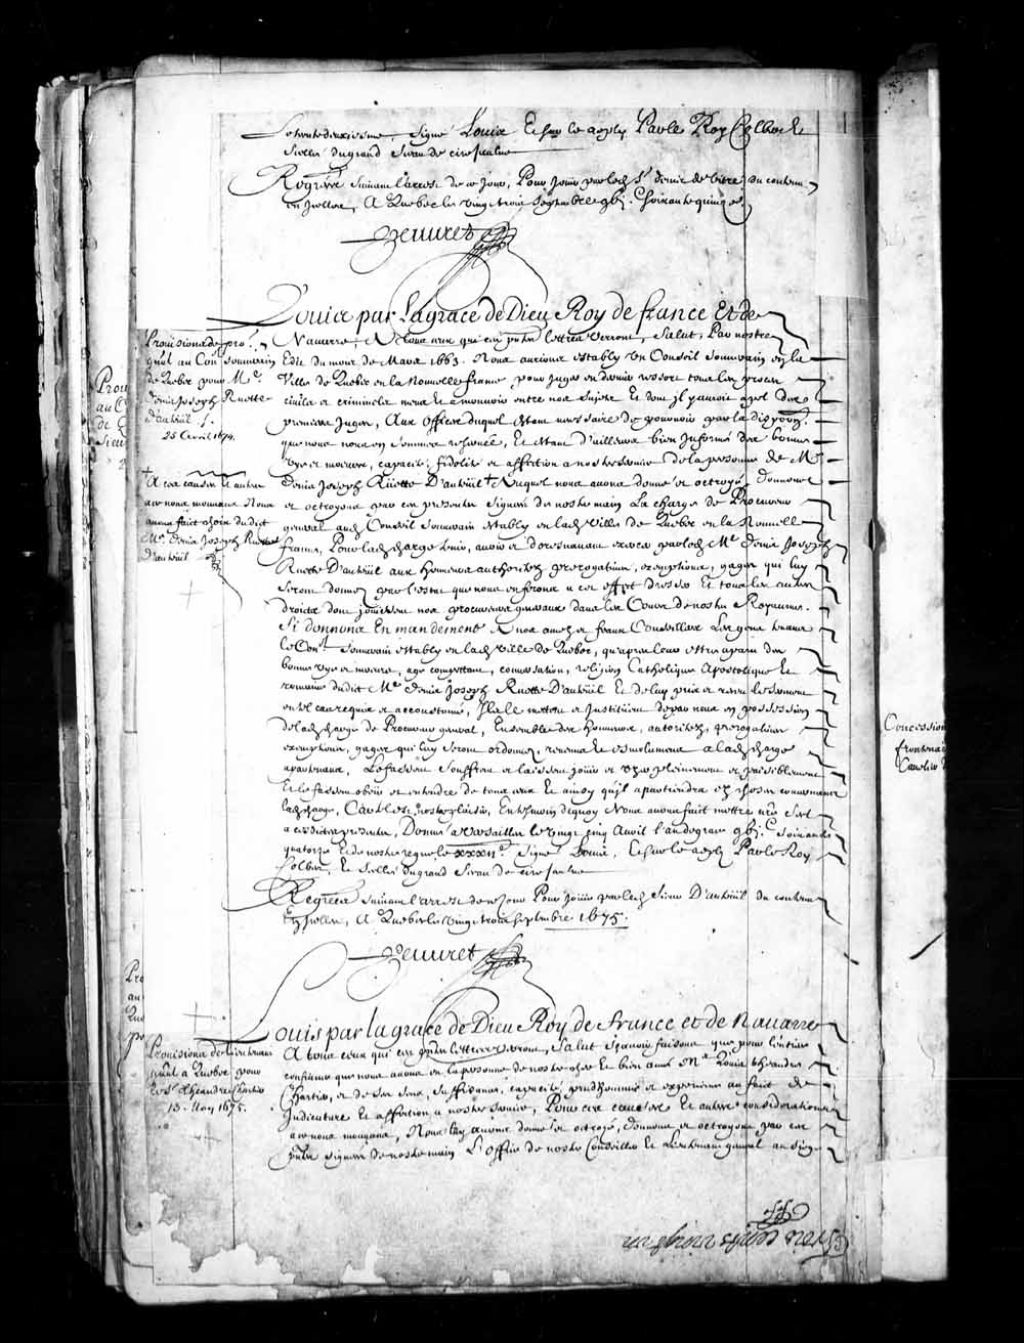 signé Louis Et sur le reply Par le Roy Colbert
Scellé du grand Sceau de cire jaune
Registré suivant l'arrest de ce jour, Pour jouir par led. Sr. denis de Vitré du contenu
en Icelles, A Quebec le vingt trois septembre gbjc. soixante quinze
Peuvret
Louis par la grace de Dieu Roy de france Et de
Navarre, A tous ceux qui ces pntes lettres verront, Salut, Par nostre
Edit du mois de Mars 1663. Nous aurions estably Un Conseil Souverain en la
Ville de Quebec en la Nouvelle france, pour juger en dernier ressort tous les procez
civils et criminels meus et a mouvoir entre nos sujets Et dont il y auroit apel des
premiers Juges, Aux Offices duquel Estant necessaire de pourvoir par la disposon.
que nous nous en sommes reservée, Et Estant d'ailleurs bien Informé des bonnes
vye et moeurs, capacité, fidelité et affection a nostre service de la personne de Me.
denis Joseph Rüette D'auteüil + Auquel nous avons donné et octroyé, donnons
et octroyons par ces presentes signées de nostre main La charge de Procureur
general aud. Conseil Souverain estably en lad. Ville de Quebec en la Nouvelle
france, Pour lad. charge tenir, avoir et doresnavant exercer par led. Me. denis Joseph
Ruette D'auteüil aux honneurs authoritez prerogatives, exemptions, gages qui luy
seront donnez par l'estat que nous en ferons a cet effet dresser Et tous les autres
droicts dont jouissent nos procureurs generaux dans les Cours de nostre Royaume.
Si donnons En mandement A nos amez et feaux Conseillers Les gens tenans
le Conel. Souverain estably en lad. Ville de Quebec, qu'apres leur estre aparu des
bonnes vye et moeurs, age competant, conversation, religion Catholique Apostolique Et
romaine dudit Me. denis Joseph Ruette D'auteüil Et de luy pris et receu le serment
en tel cas requis et accoustumé, Ils le mettent et Instituent de par nous en possession
de lad. charge de Procureur general, Ensemble des honneurs, autoritez, prerogatives
exemptions, gages qui luy seront ordonnez, revenus et esmolumens a lad. charge
apartenans, Le fassent souffrent et laissent jouir et user plainement et paisiblement
Et le fassent obeir et entendre de tous ceux Et ainsy qu'il apartiendra ez choses concernant
lad. charge, Car tel est nostre plaisir, En tesmoin de quoy Nous avons fait mettre nre Scel
a cesdites presentes, Donné a Versailles le vingt cinq Avril l'an de grace gbjc. soixante
quatorze Et de nostre regne le xxxiie. Signé Louis, Et sur le reply Par le Roy
Colbert, Et Scellé du grand Sceau de cire jaune
Registrées suivant l'arrest de ce jour Pour jouir par led. Sieur D'auteüil du contenu
En Icelles, A Quebec le vingt trois septembre 1675.
Peuvret
Louis par la grace de Dieu Roy de france et de Navarre
A tous ceux qui ces pntes lettres verront, Salut sçavoir faisons que pour l'entiere
confiance que nous avons en la personne de nostre cher Et bien amé Me. Louis theandre
Chartier, et de ses sens, suffisance, capacité, preudhommie et experience au fait de
Judicature Et affection a nostre service, Pour ces causes Et autres considerations
a ce nous mouvans, Nous luy avons donné et octroyé, donnons et octroyons par ces
pntes signées de nostre main L'office de nostre Conseiller Et Lieutenant general au siege
Provisions de pror.
gnal au Conel. souverain
de Quebec pour Me.
denis Joseph Ruette
d'auteüil
25 Avril 1674.
+ A ces causes Et autres
a ce nous mouvans Nous
avons fait choix dudit
Me. denis Joseph Ruette
D'auteüil
Provisions de Lieutenant
gnal a Quebec pour
le Sr. Theandre Chartier
13. May 1675.
Concession
frontenac